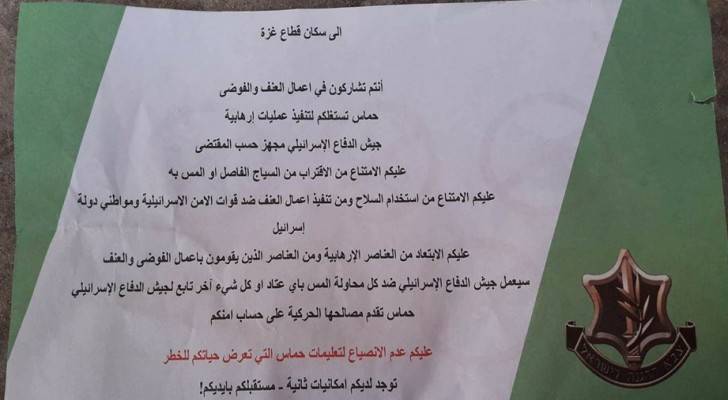 الى سكان قطاع غزة
أنتم تشاركون في اعمال العنف والفوضى
حماس تستغلكم لتنفيذ عمليات إرهابية
جيش الدفاع الإسرائيلي مجهز حسب المقتضى
عليكم الامتناع من الاقتراب من السياج الفاصل او المس به
عليكم الامتناع من استخدام السلاح ومن تنفيذ اعمال العنف ضد قوات الامن الاسرائيلية ومواطني دولة
إسرائيل
عليكم الابتعاد من العناصر الإرهابية ومن العناصر الذين يقومون باعمال الفوضى والعنف
سيعمل جيش الدفاع الإسرائيلي ضد كل محاولة المس باي عتاد او كل شيء آخر تابع لجيش الدفاع الإسرائيلي
حماس تقدم مصالحها الحركية على حساب امنكم
عليكم عدم الانصياع لتعليمات حماس التي تعرض حياتكم للخطر
توجد لديكم امكانيات ثانية - مستقبلكم بايديكم!
צבא הגנה לישראל